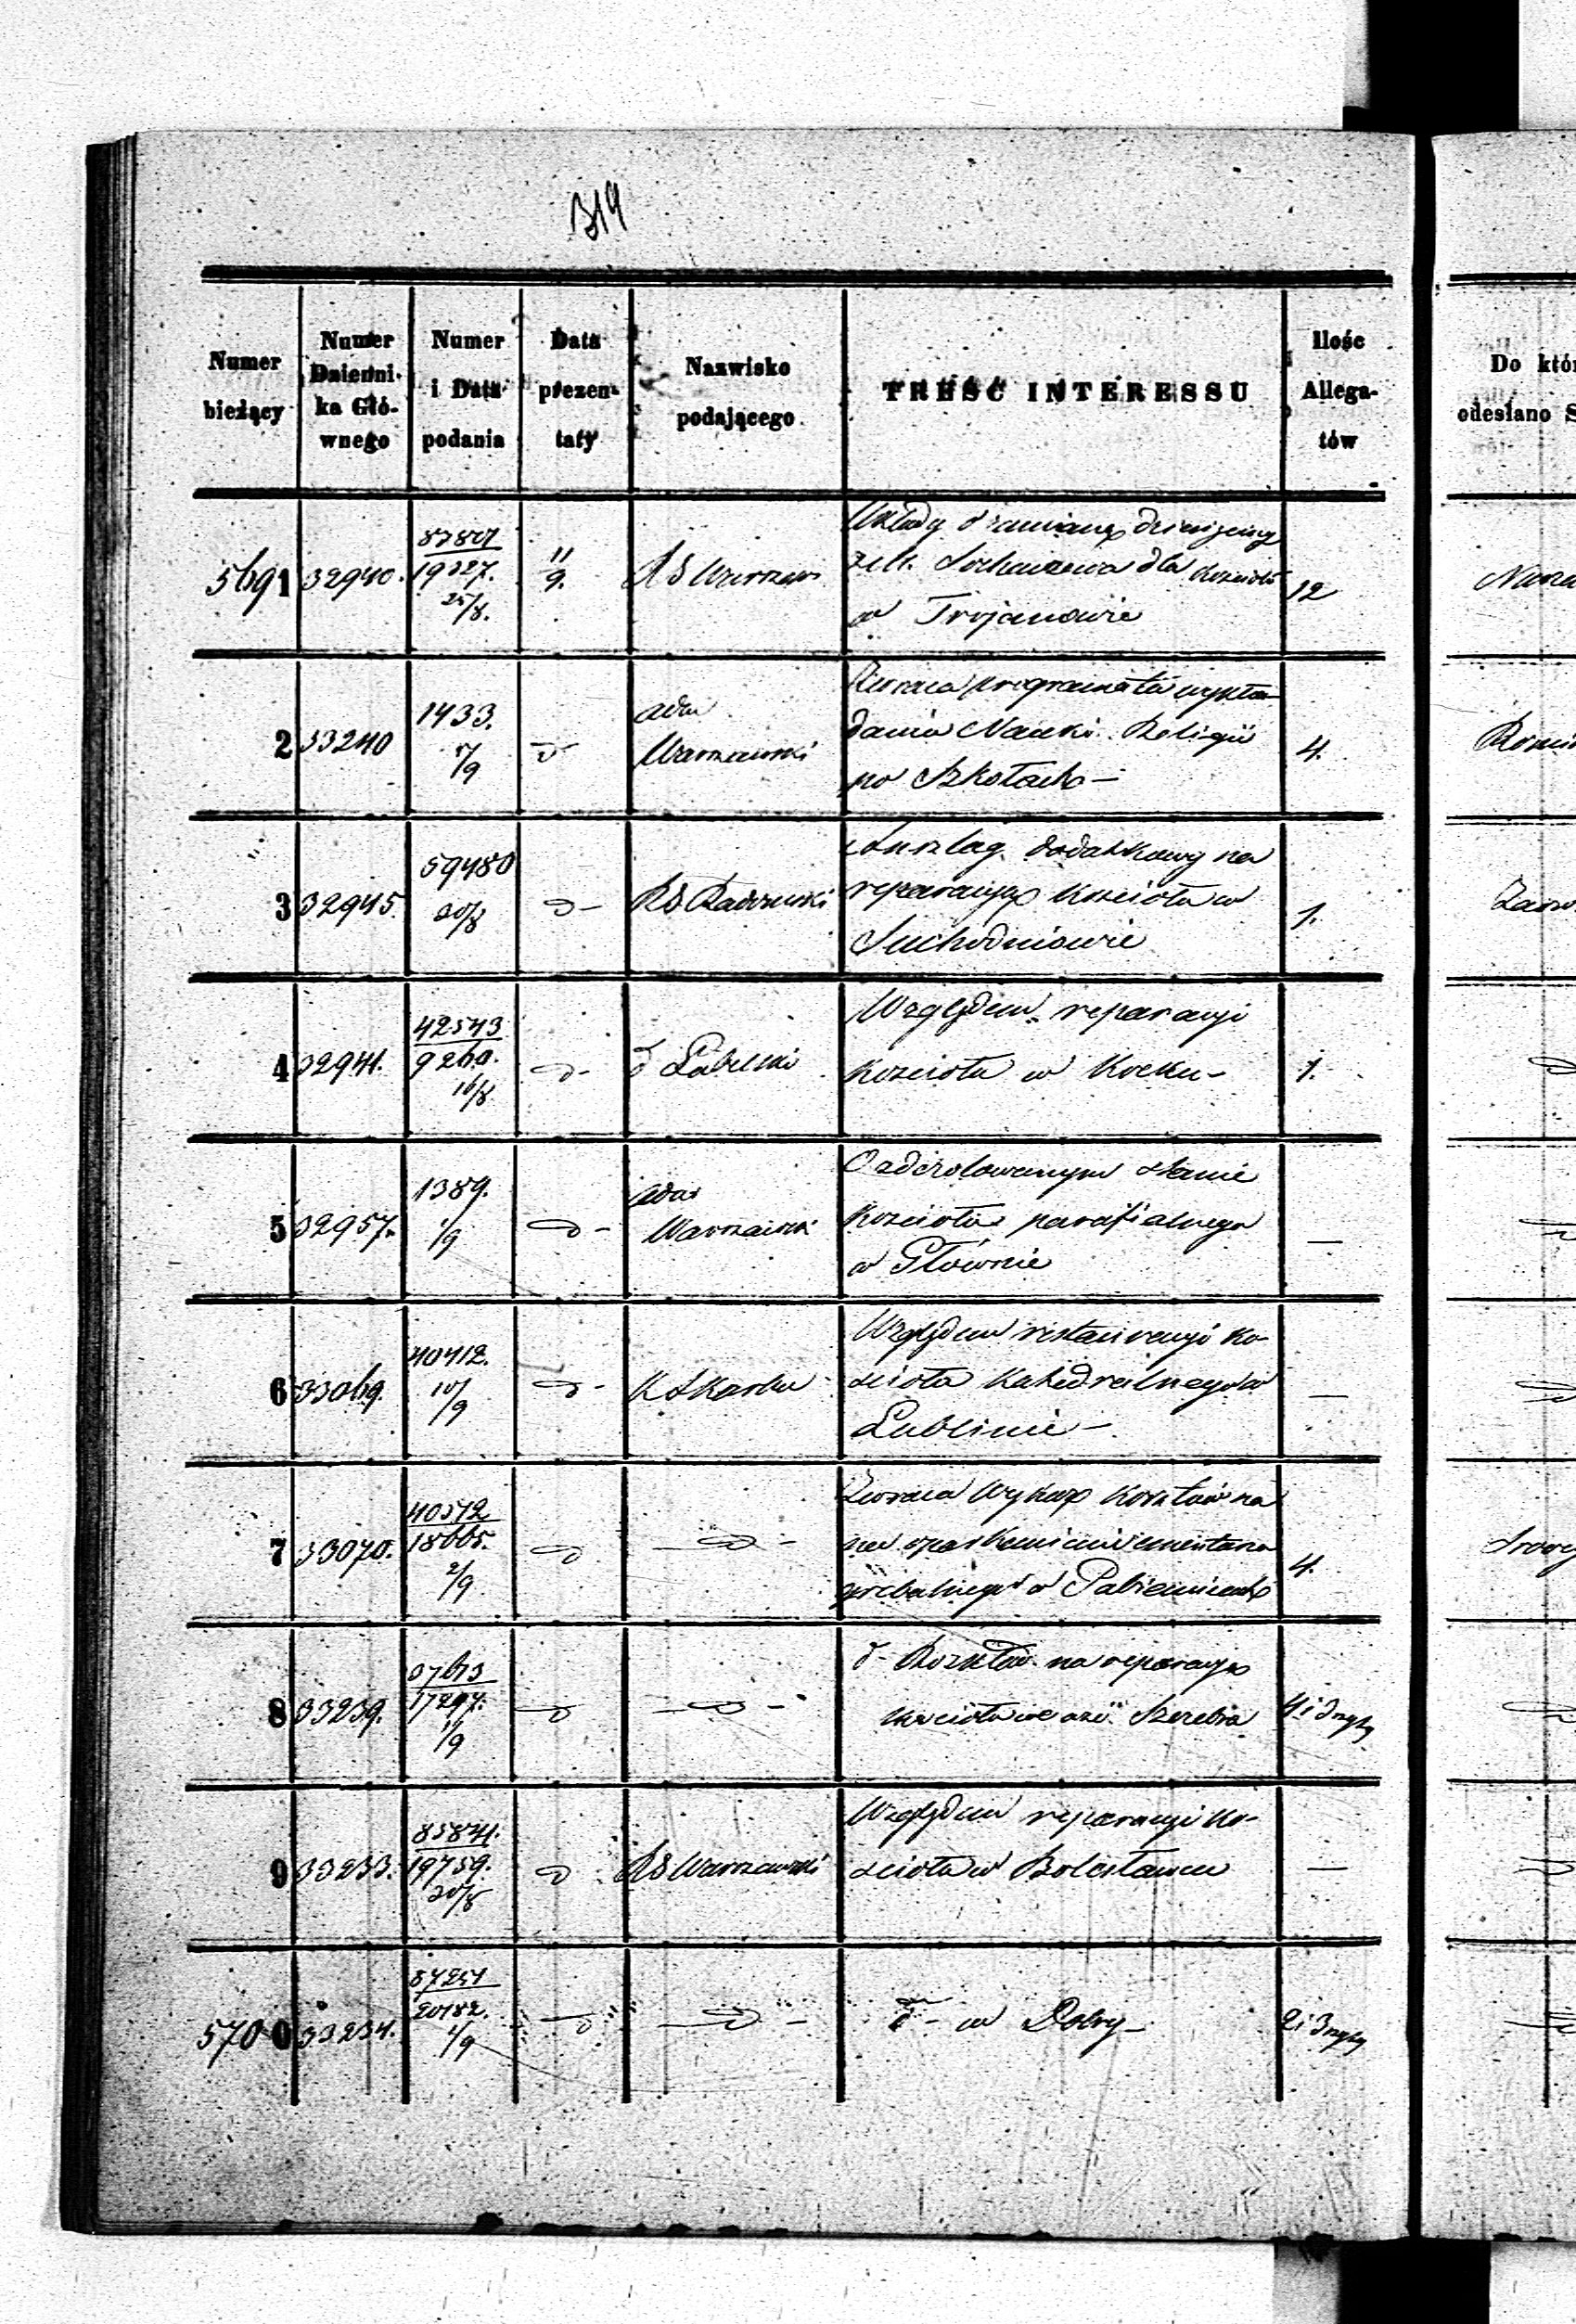 319
Numer bieżący
Numer Dzienni- ka Głó- wnego
Numer i Data podania
Data prezen- taty
Nazwisko podającego
TREŚĆ INTERESSU
Ilość Allega- tów
Do któr
odesłano S
5691 32940. 83807 19327. 25/8. 11/9. R G Warszaws 12
Układy o zamianę dziesięciny
z M. Sochaczewa dla Kościoła
w Trojanowie
2 33240 1433. 7/9 d Adm Warszawski 4.
Zwraca programata wykła-
dania Nauki Religii
po Szkołach –
3 32945. 59480 20/8 d – R G Radomski 1.
Anszlag dodatkowy na
reparacyę Kościoła w
Suchedniowie
4 32941. 42543 9260. 16/8 d – d Lubelski 1.
Względem reparacyi
Kościoła w Kocku –
5 32957. 1389. 1/9 d – Adm Warszawski —
O zdezolowanym stanie
Kościoła parafialnego
w Głównie
6 33069. 40412. 10/9 d – K Skarbu —
Względem restauracyi Ko-
ścioła Katedralnego w
Lublinie –
7 33070. 40572 18665. 2/9 d — d – 4.
Zwraca Wykaz Kosztów na
oparkanienie cmentarza
grzebalnego w Pabianicach
Srowy
8 33239. 37673 17297. 1/9 d — d – 4 i 3 rysy
d – Kosztów na reparacyę
Kościoła we wsi Szczebra
9 33233. 85841. 19759. 30/8 d R G Warszawski —
Względem reparacyi Ko-
ścioła w Bolesławcu
5700 33234. 87251 20182. 1/9 d — d – 2 i 3 rysy
d – w Dobry –